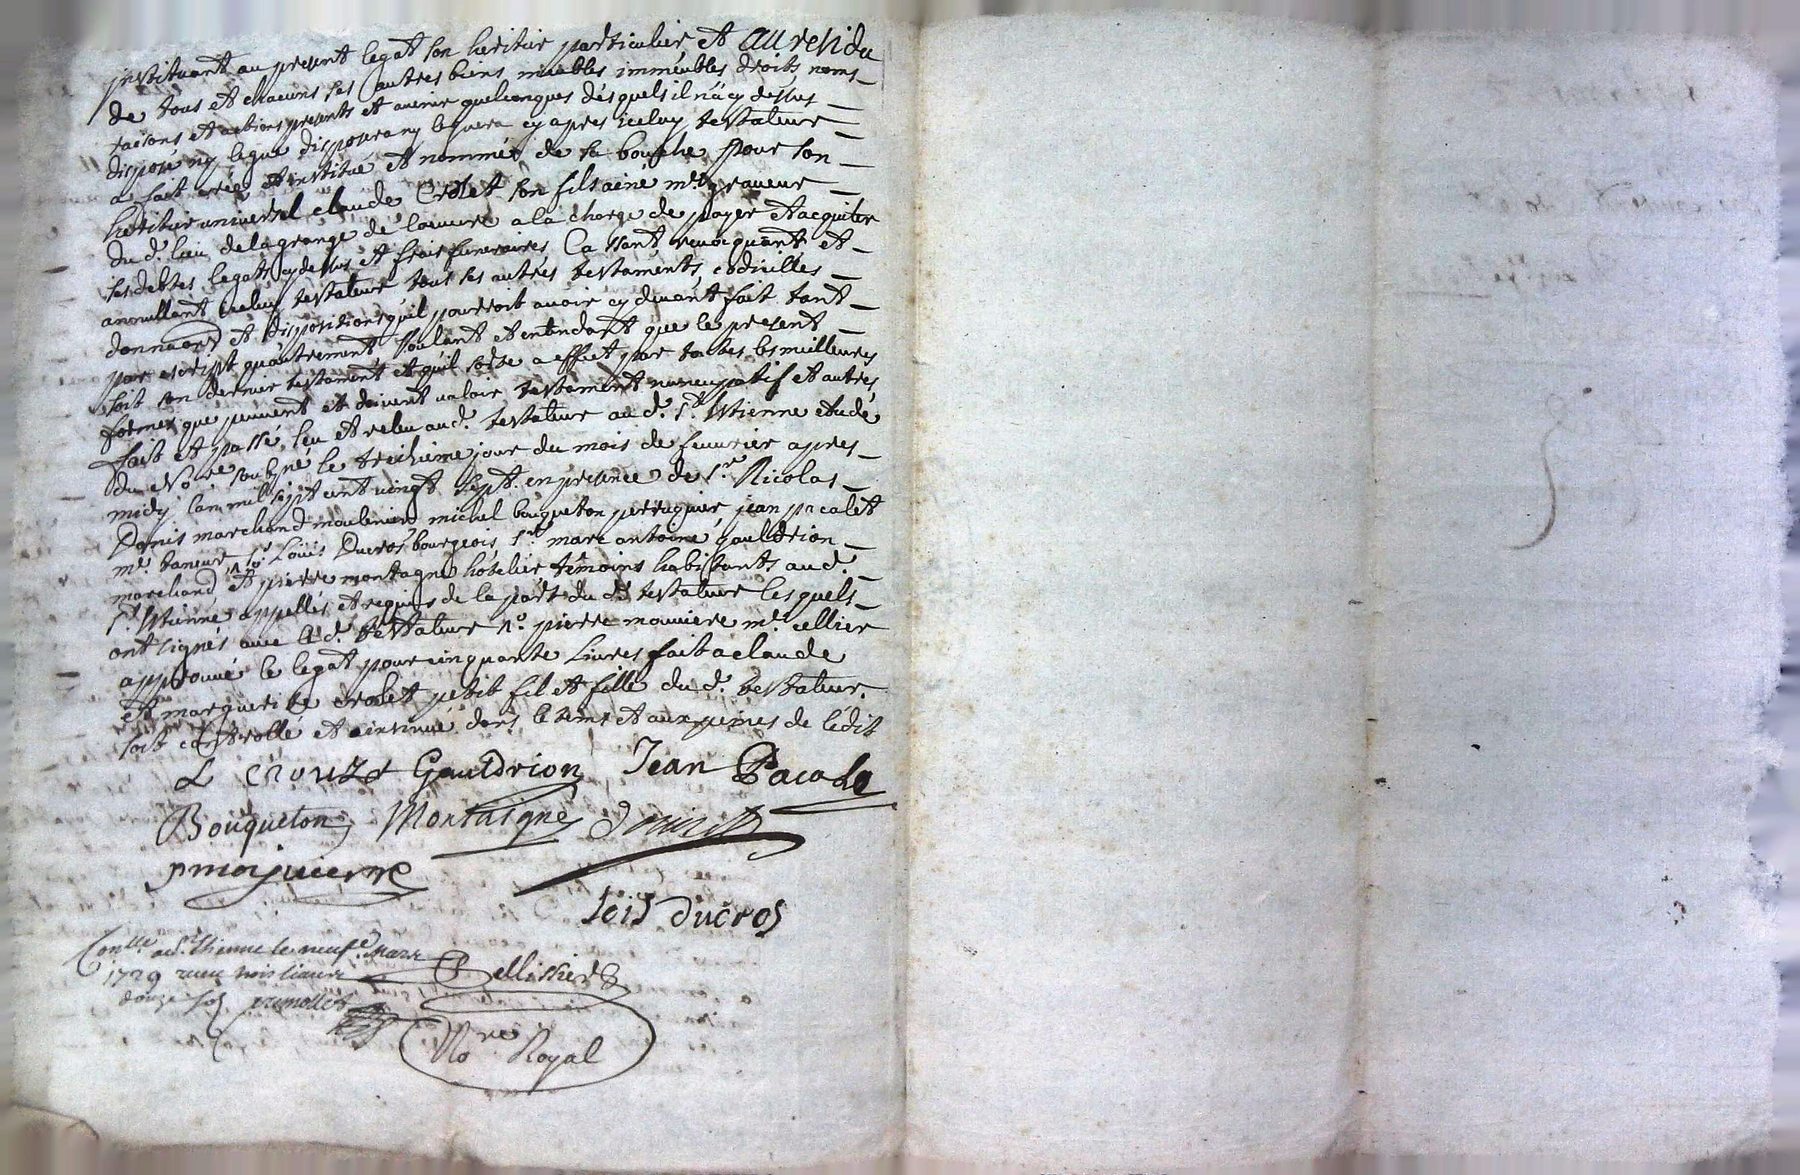 instituant au present legat son heritier particulier Et au residu
de tous et chacuns ses autres biens meubles immeubles droits noms
raisons et actions presents et avenir quelconques desquels il n'a cy dessus
disposé ny legué disposera ny leguera cy apres iceluy testateur
a fait créé et institué et nommé de sa bouche pour son
heritier universel claude Crozet son fils ainé me graveur
du d. lieu de la grange de l'oeuvre a la charge de payer et acquiter
ses debtes legats cy dessus et frais funeraires Cassant revocquant et
annullant iceluy testateur tous ses autres testaments codicilles
donnaons et dispositions qu'il pourroit avoir cy devant fait tant
par escript qu'autrement Voulant et entendant que le present
soit son dernier testament et qu'il sorte a effect par toutes les meilleures
formes que peuvent et doivent valoir testament nuncupatif et autres
fait et passé, leu et releu aud. testateur au d. St. Estienne etude
du No.re soubsné le treizieme jour du mois de fevvrier apres
midy l'an mil sept cent vingt sept. en presence de Sr. Nicolas
Denis marchand moulinier michel bouqueton perruquier jean pacalet
me. taneur, Sr. Loüis Ducros bourgeois, Sr. marc antoine gauldrion
marchand et pierre montagne hôtelier témoins habitants au d.
St. Estienne appellés et requis de la part du d. testateur lesquels
ont signés avec le d. testateur So. pierre mouniere me. cellier
approuvé le legat pour cinquante Livres fait a claude
et marguerite crozet petit fil et fille du d. testateur.
soit controllé et insinué dans le tems et aux peines de l'édit
Gauldrion Jean Pacale
Bouqueton Montaigne
löis ducros
Conllé a St. Etienne le neufe. mars
1729 receu trois livres
douze sols
Pellissier
No.re Royal